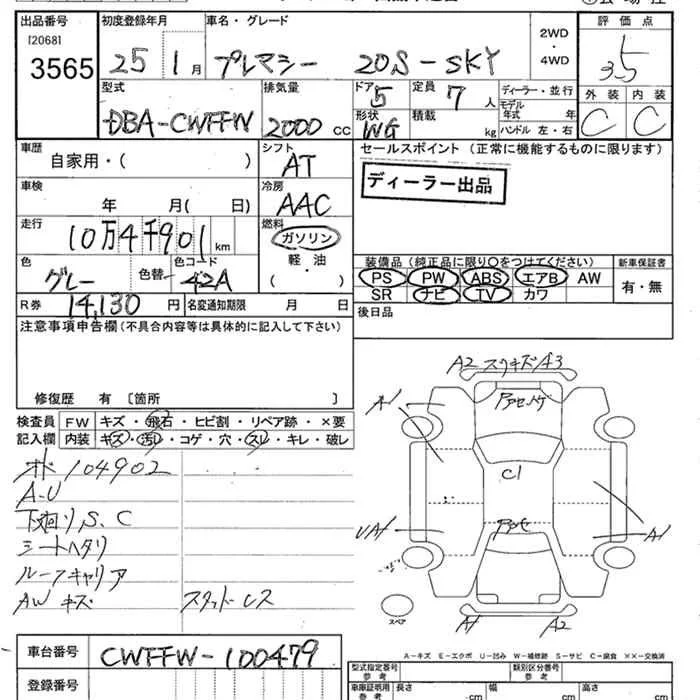 出品番号 初度登録年月 車名・グレード 2WD ・ 4WD 評価点
[2068] 3565 25 1月 プレマシー 20S-SKY 3.5
型式 排気量 ドア 定員 ディーラー・並行 外装 内装
DBA-CWFFW 2000 CC 5 7人 モデル年式 年 C C
形状 WG 積載 kg ハンドル 左・右
車歴 シフト セールスポイント (正常に機能するものに限ります)
自家用・( ) AT
ディーラー出品
車検 冷房
年 月( 日) AAC
走行 燃料
10万4千901 km ガソリン
軽・油
( )
装備品 (純正品に限り○をつけてください) 新車保証書
色 グレー 色替 色コード 42A
PS PW ABS エアB AW 有・無
SR ナビ TV カワ
R券 14,130 円 名変通知期限 月 日 後日品
注意事項申告欄(不具合内容等は具体的に記入して下さい)
修復歴 有 〔箇所 〕
検査員 FW キズ・飛石・ヒビ割・リペア跡・×要
記入欄 内装 キズ・汚レ・コゲ・穴・スレ・キレ・破レ
オド 104902
A-U
下廻りS、C
シートヘタリ
ルーフキャリア
AW キズ スタッドレス
A2 スリキズ A3
A1
C1
UA1 A1
スペア A1 A2
A-キズ E-エクボ U-凹み W-補修跡 S-サビ C-腐食 ××-交換済
車台番号 CWFFW-100479
登録番号
型式指定番号 類別区分番号
参考 参考
車庫証明用 長さ 幅 高さ
参考 -cm -cm -cm